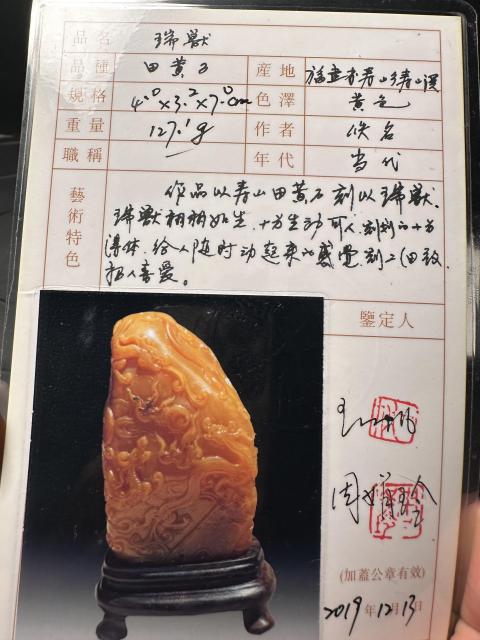 品名 瑞獸
品種 田黄石 産地 福建省寿山乡寿山溪
規格 4.0×3.2×7.0cm 色澤 黄色
重量 127.1g 作者 佚名
職稱 年代 当代
藝術特色
作品以寿山田黄石刻以瑞獸.
瑞獸栩栩如生,十分生动可人,刻划的十分
得体,给人随时动起来的感覺,刻工细致,
招人喜爱。
鑒定人
(加蓋公章有效)
2019年12月13日